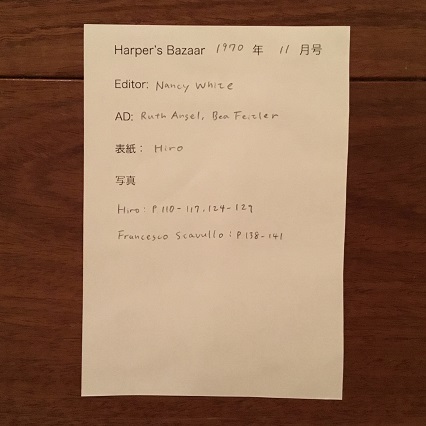 Harper's Bazaar 1970 年 11 月号
Editor: Nancy White
AD: Ruth Ansel, Bea Feitler
表紙： Hiro
写真
Hiro: P 110-117, 124-129
Francesco Scavullo: P 138-141